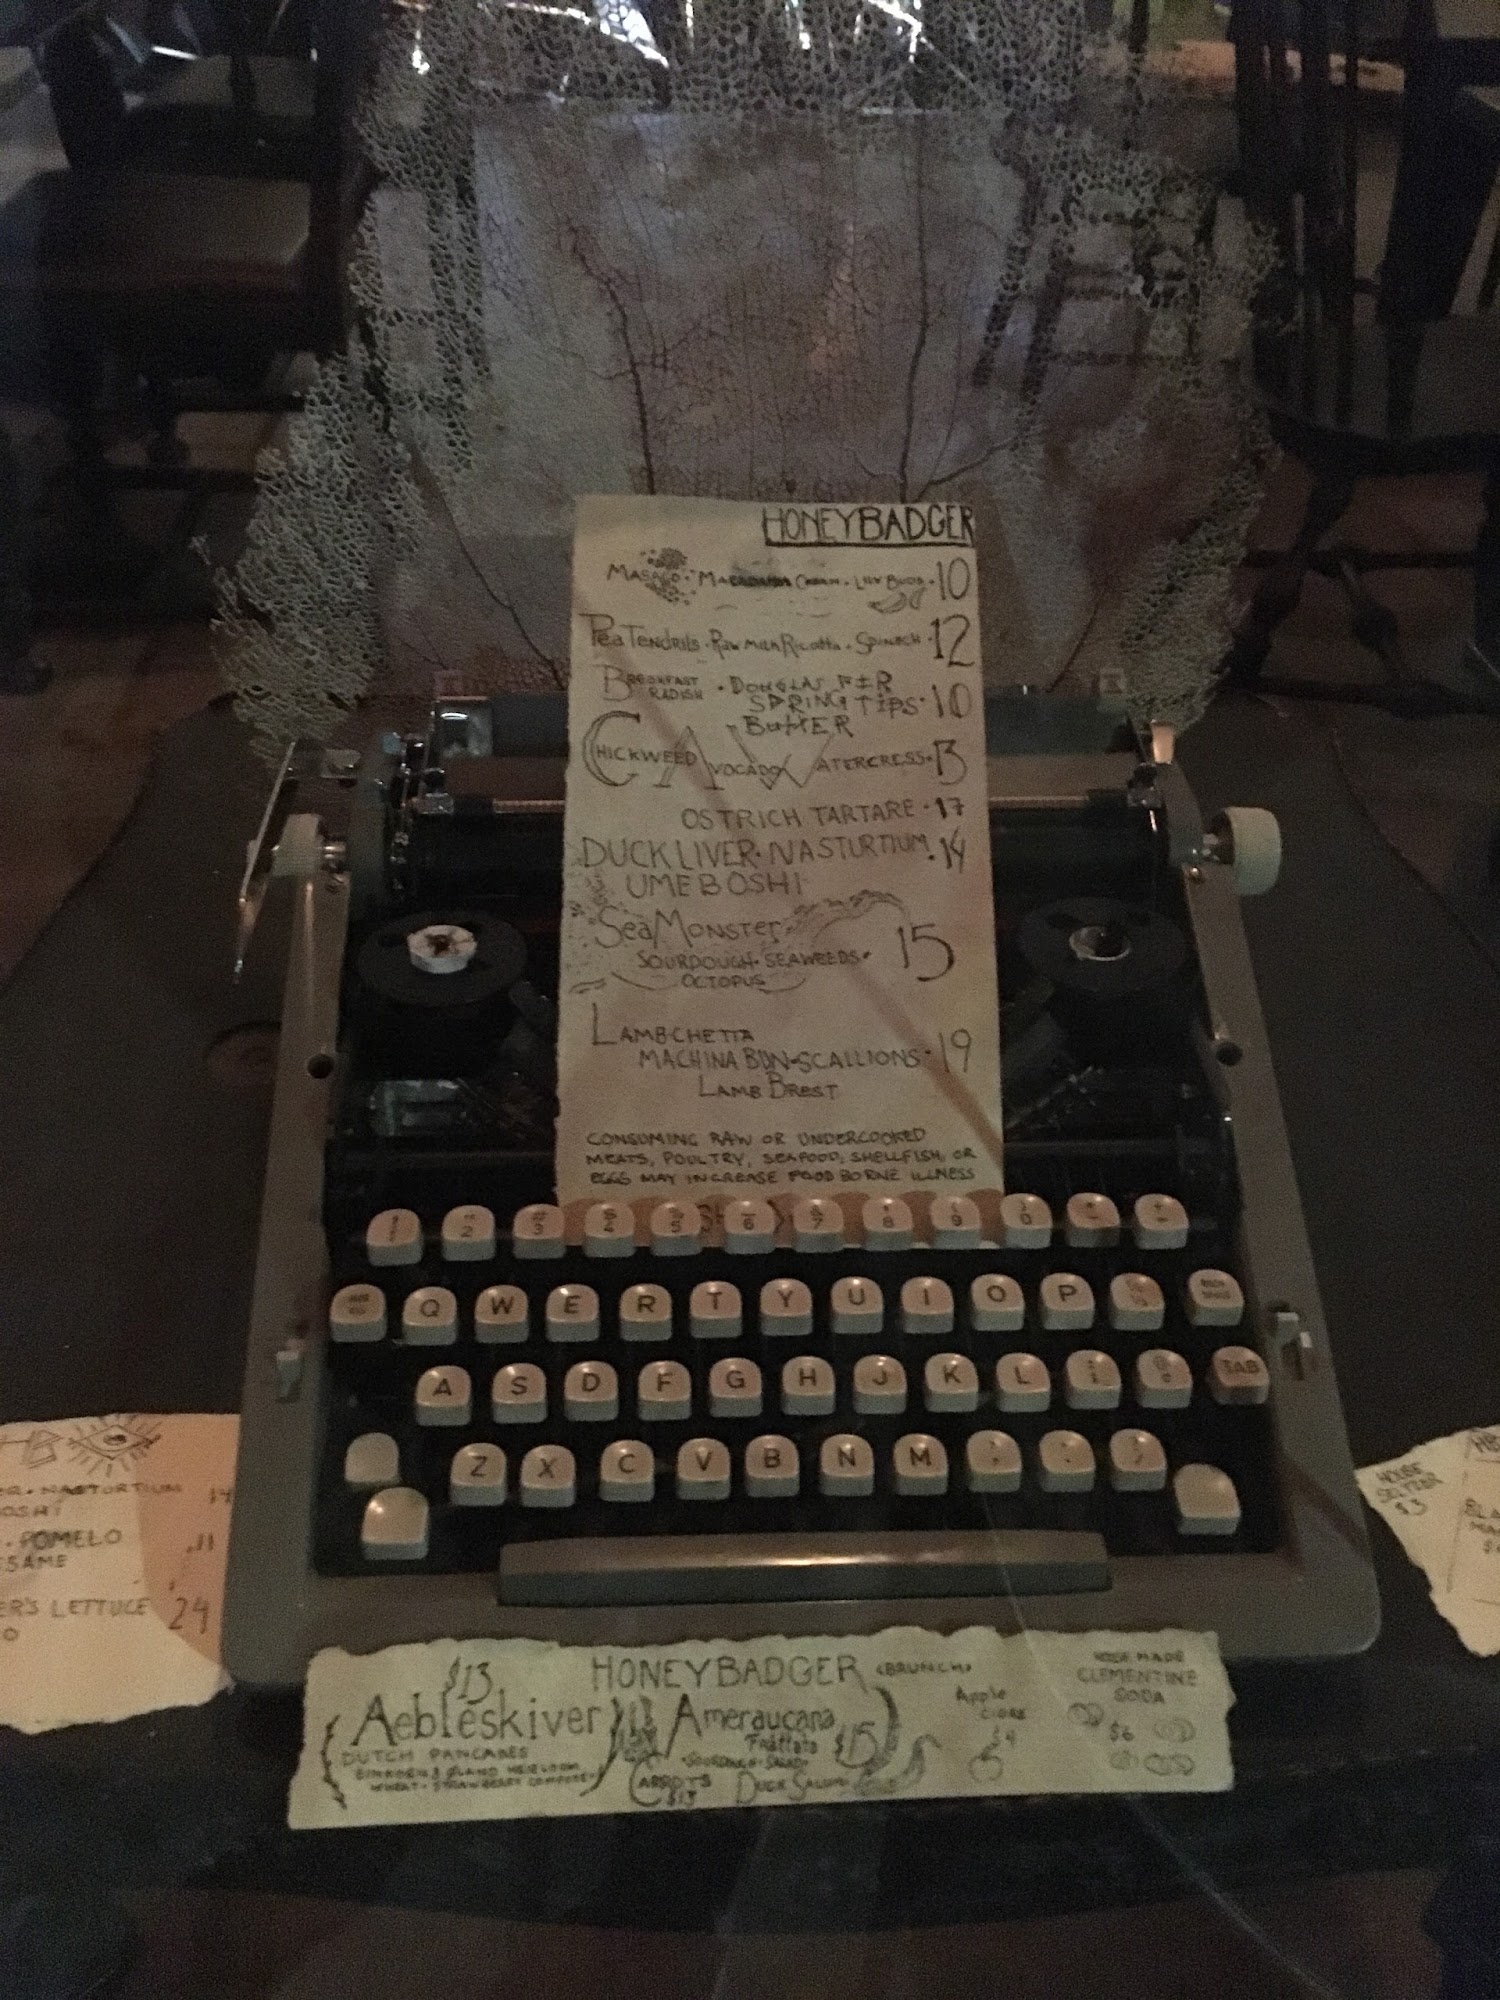 HONEYBADGER
MASAGO · MACADAMIA CREAM · LILY BUDS · 10
PEA TENDRILS · RAW MILK RICOTTA · SPINACH · 12
BREAKFAST RADISH · DOUGLAS FIR
SPRING TIPS · 10
BUTTER
CHICKWEED AVOCADO WATERCRESS · 13
OSTRICH TARTARE · 17
DUCK LIVER · NASTURTIUM · 14
UMEBOSHI
SEA MONSTER
SOURDOUGH · SEAWEEDS · 15
OCTOPUS
LAMBCHETTA
MACHINA BUN · SCALLIONS · 19
LAMB BREST
CONSUMING RAW OR UNDERCOOKED
MEATS, POULTRY, SEAFOOD, SHELLFISH, OR
EGGS MAY INCREASE FOOD BORNE ILLNESS
2 3 4 5 6 7 8 9 0
Q W E R T Y U I O P
A S D F G H J K L TAB
Z X C V B N M
R · NASTURTIUM 14
OSHI
· POMELO 11
SAME
ER'S LETTUCE 24
O
HOUSE
SELTZER
$3
BLA
MA
$13 HONEYBADGER (BRUNCH)
Aebleskiver
DUTCH PANCAKES
WHEAT · STRAWBERRY COMPOTE
Ameraucana
Frattata $15
SOURDOUGH · SALAD
CARROTS DUCK SALUMI
$13
Apple
CIDER
$4
HOUSE MADE
CLEMENTINE
SODA
$6